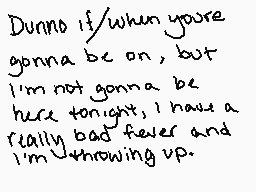 Dunno if/when youre
gonna be on, but
I'm not gonna be
here tonight, I have a
really bad fever and
I'm throwing up.